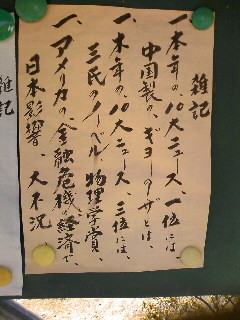 雑記
一、本年の、10大ニュース、一位には、
中国製の、ギョーザとは、
一、本年の、10大ニュース、三位には、
三氏のノーベル、物理学賞、
一、アメリカの、金融危機、経済で、
日本影響、大不況
雑記